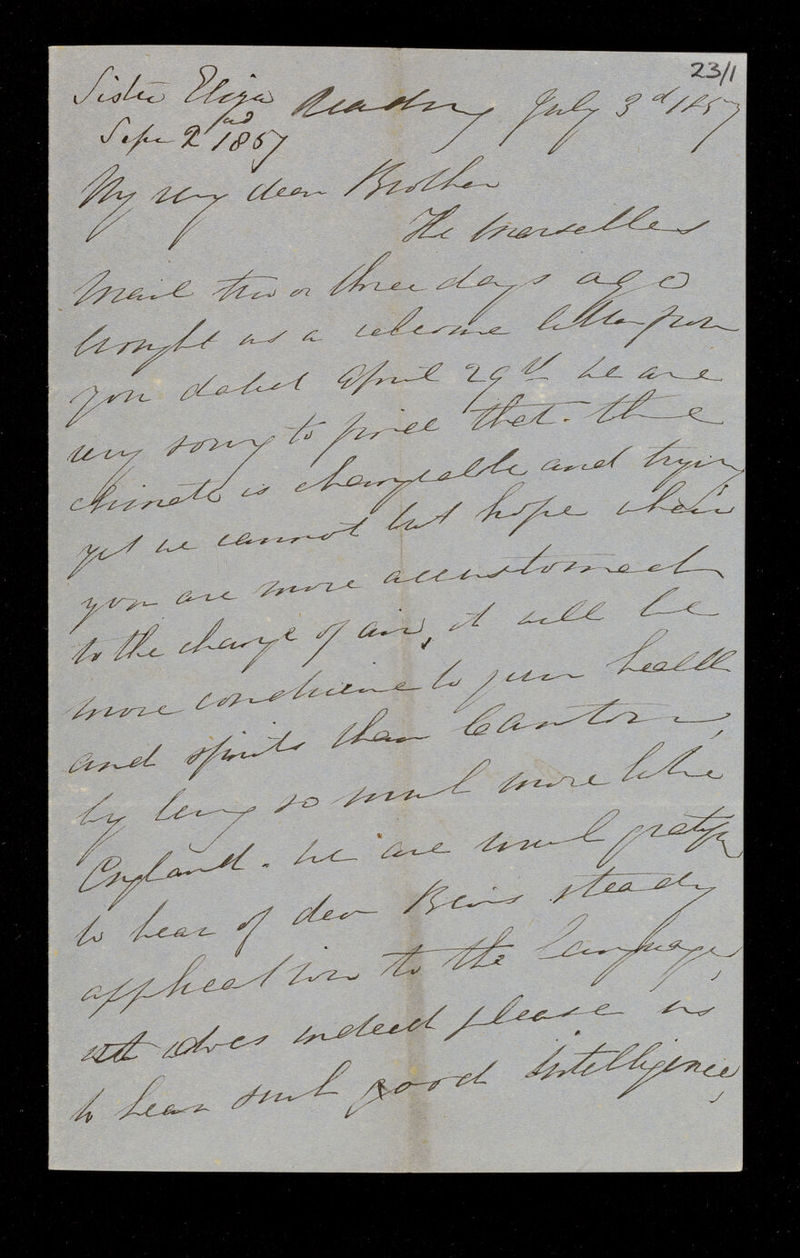 23/1
Sister Eliza Reading July 3d 1857
Sepr 2nd 1857
My very dear Brother
The Marselles
Mail two or three days ago
brought us a welcome letter from
you dated April 29th we are
very sorry to find that the
climate is changeable and trying
yet we cannot but hope when
you are more accustomed
to the change of air, it will be
more conducive to your health
and spirits than Canton,
by being so much more like
England. we are much gratified
to hear of dear Bens steady
application to the language,
it does indeed please us
to hear such good intelligence,